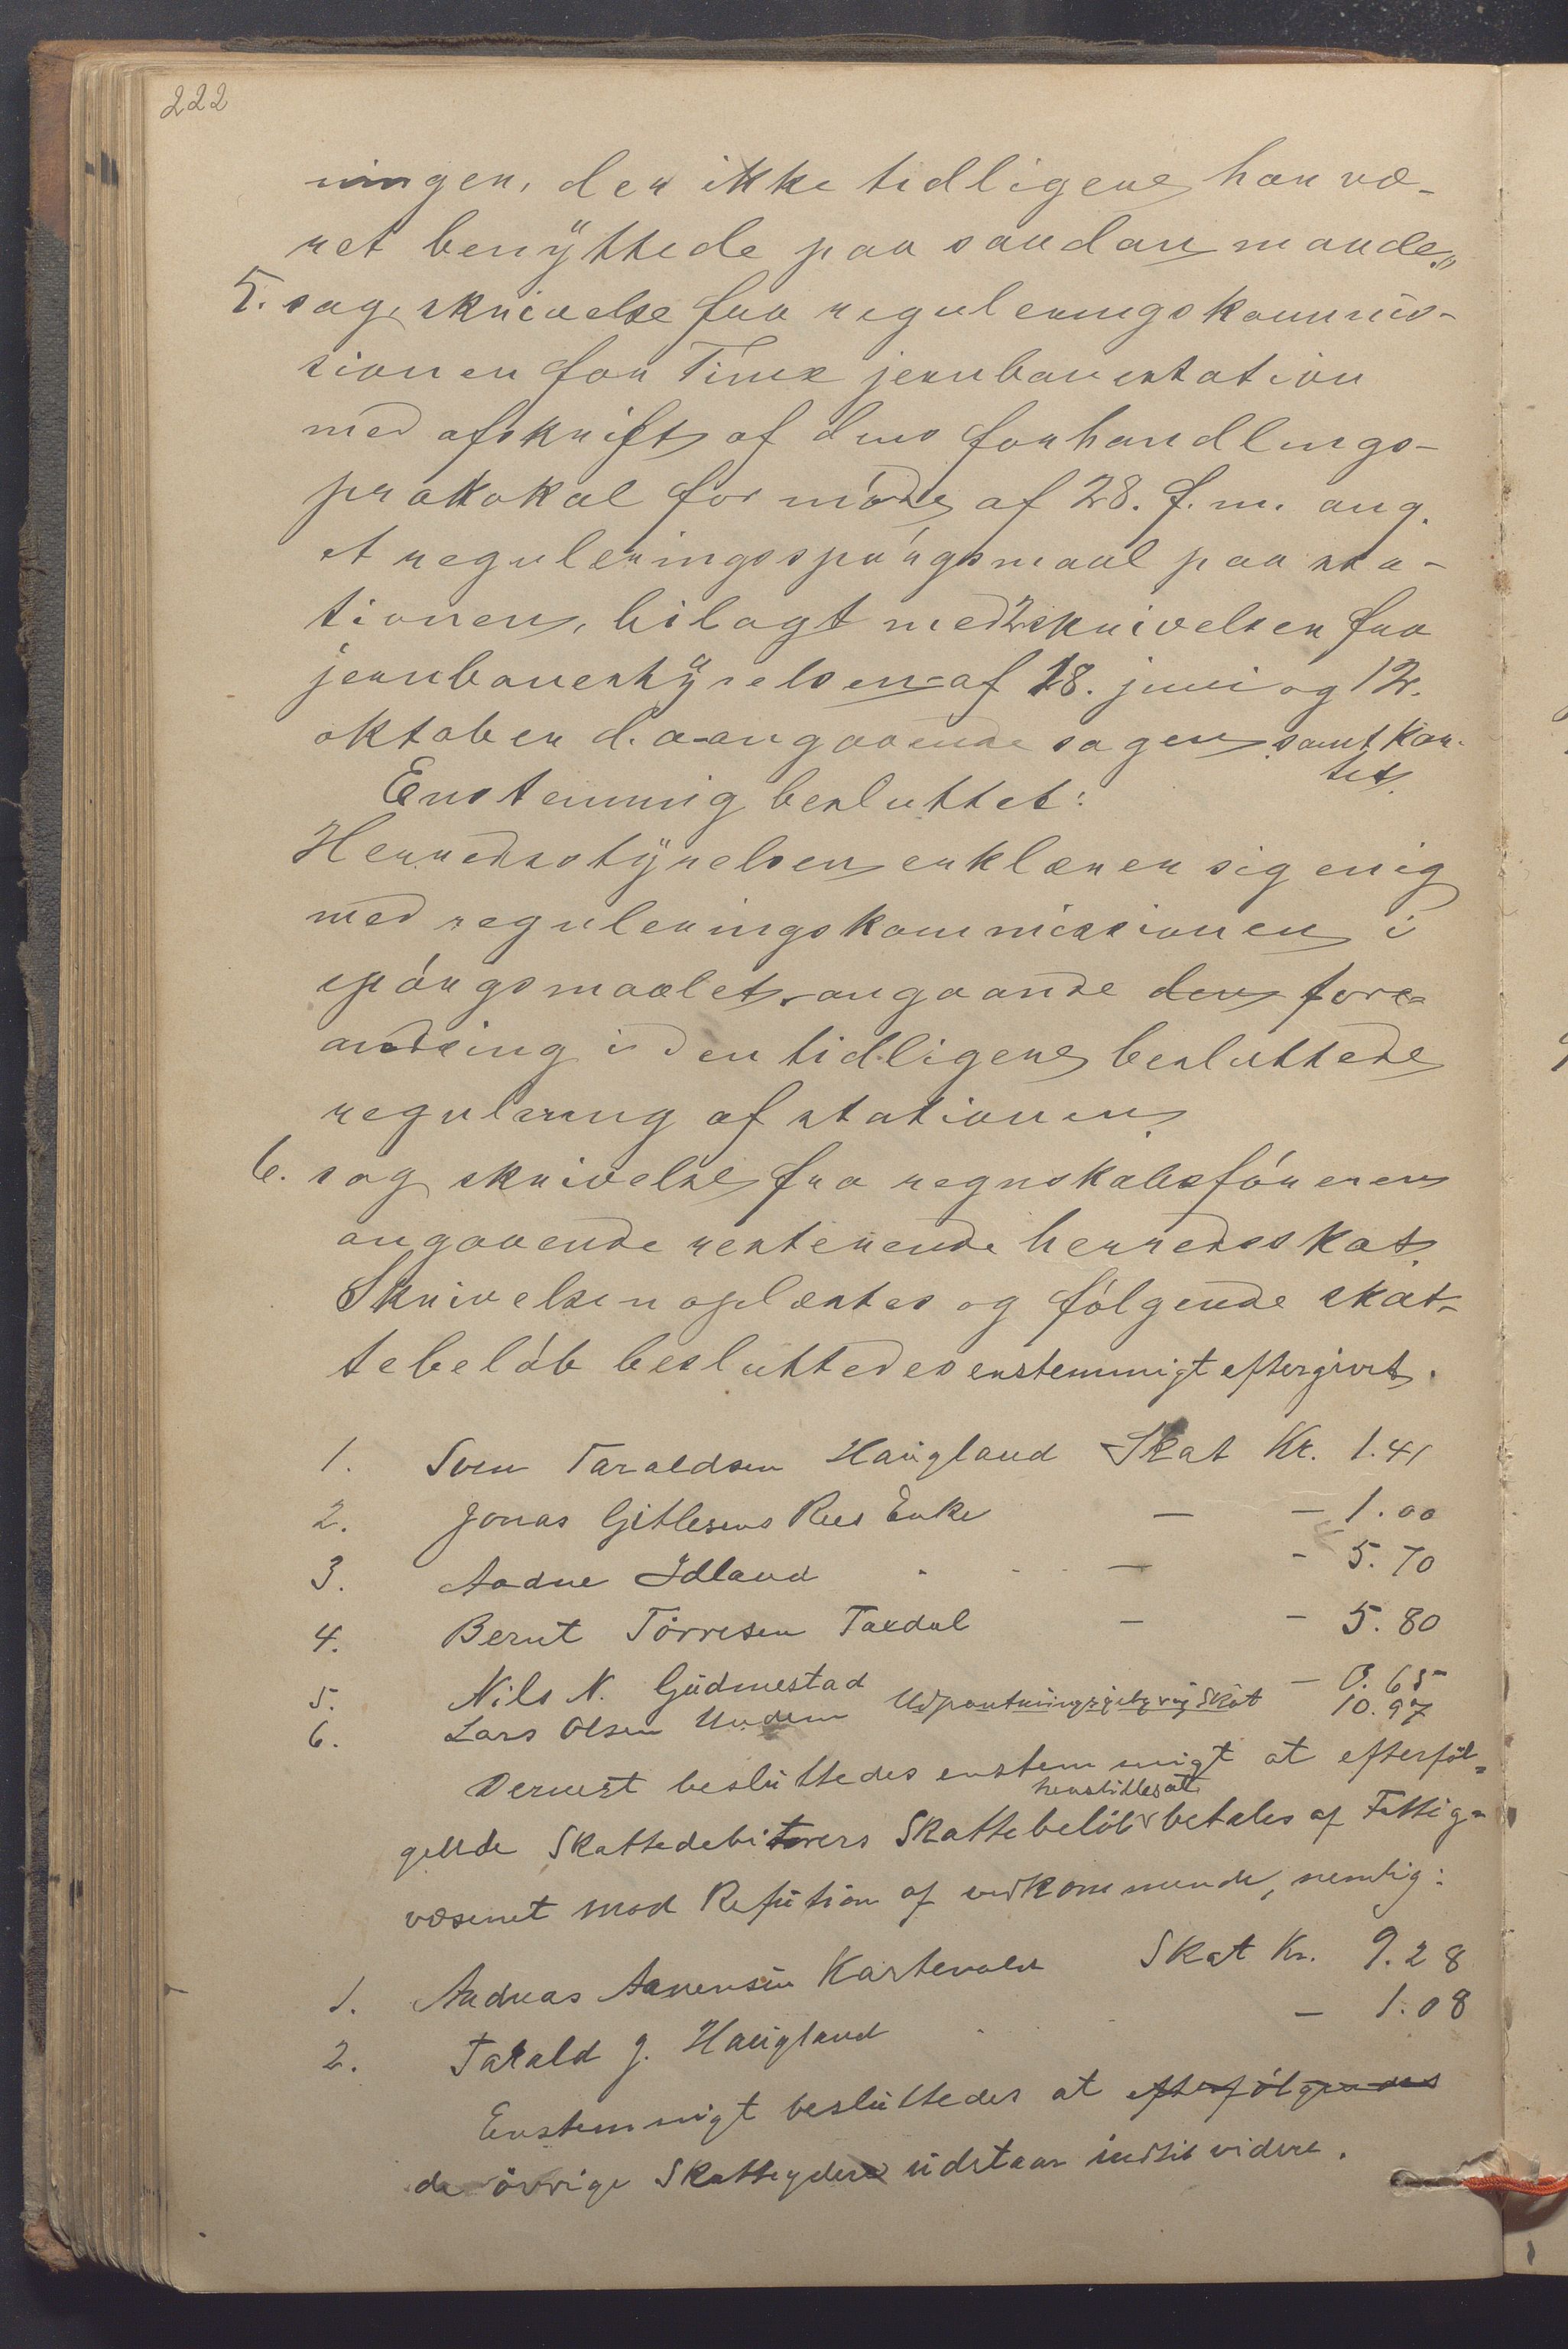 222
ningen, der ikke tidligere har væ-
ret benyttede paa saadan maade."
5. sag, skrivelse fra reguleringskommis-
sionen for Time jernbanestation
med afskrift af dens forhandlings-
protokol for møde af 28. f.m. ang.
et reguleringsspørgsmaal paa sta-
tionen, bilagt med 2 skrivelser fra
jernbanestyrelsen af 18. juni og 12.
oktober d.a. angaaende sagen samt kar-
tet.
Enstemmig besluttet:
Herredsstyrelsen erklærer sig enig
med reguleringskommissionen i
spørgsmaalet angaande den fore-
andring i den tidligere besluttede
regulering af stationen.
6. sag skrivelse fra regnskabsføreren
angaaende resterende herredsskat.
Skrivelsen oplæstes og følgende skat-
tebeløb besluttedes enstemmigt eftergivet.
1. Sven Taraldsen Haugland Skat Kr. 1.41
2. Jonas Gitlesens Rees Enke — — 1.00
3. Aadne Idland — - 5.70
4. Bernt Tørresen Taxdal — - 5.80
5. Nils N. Gudmestad — 0.65
6. Lars Olsen Undem Udpantningsgeby og Skat 10.97
Dernest besluttedes enstemmigt at efterføl-
henstilles at
gende Skattedebitorers Skattebeløb betales af Fattig-
væsenet mod Refution af vedkommende, nemlig:
1. Andreas Aanensen Kartevold Skat Kr. 9.28
2. Tarald J. Haugland — 1.08
Enstemmigt besluttedes at efterfølgendes
de øvrige Skatteydere udstaar indtil videre.